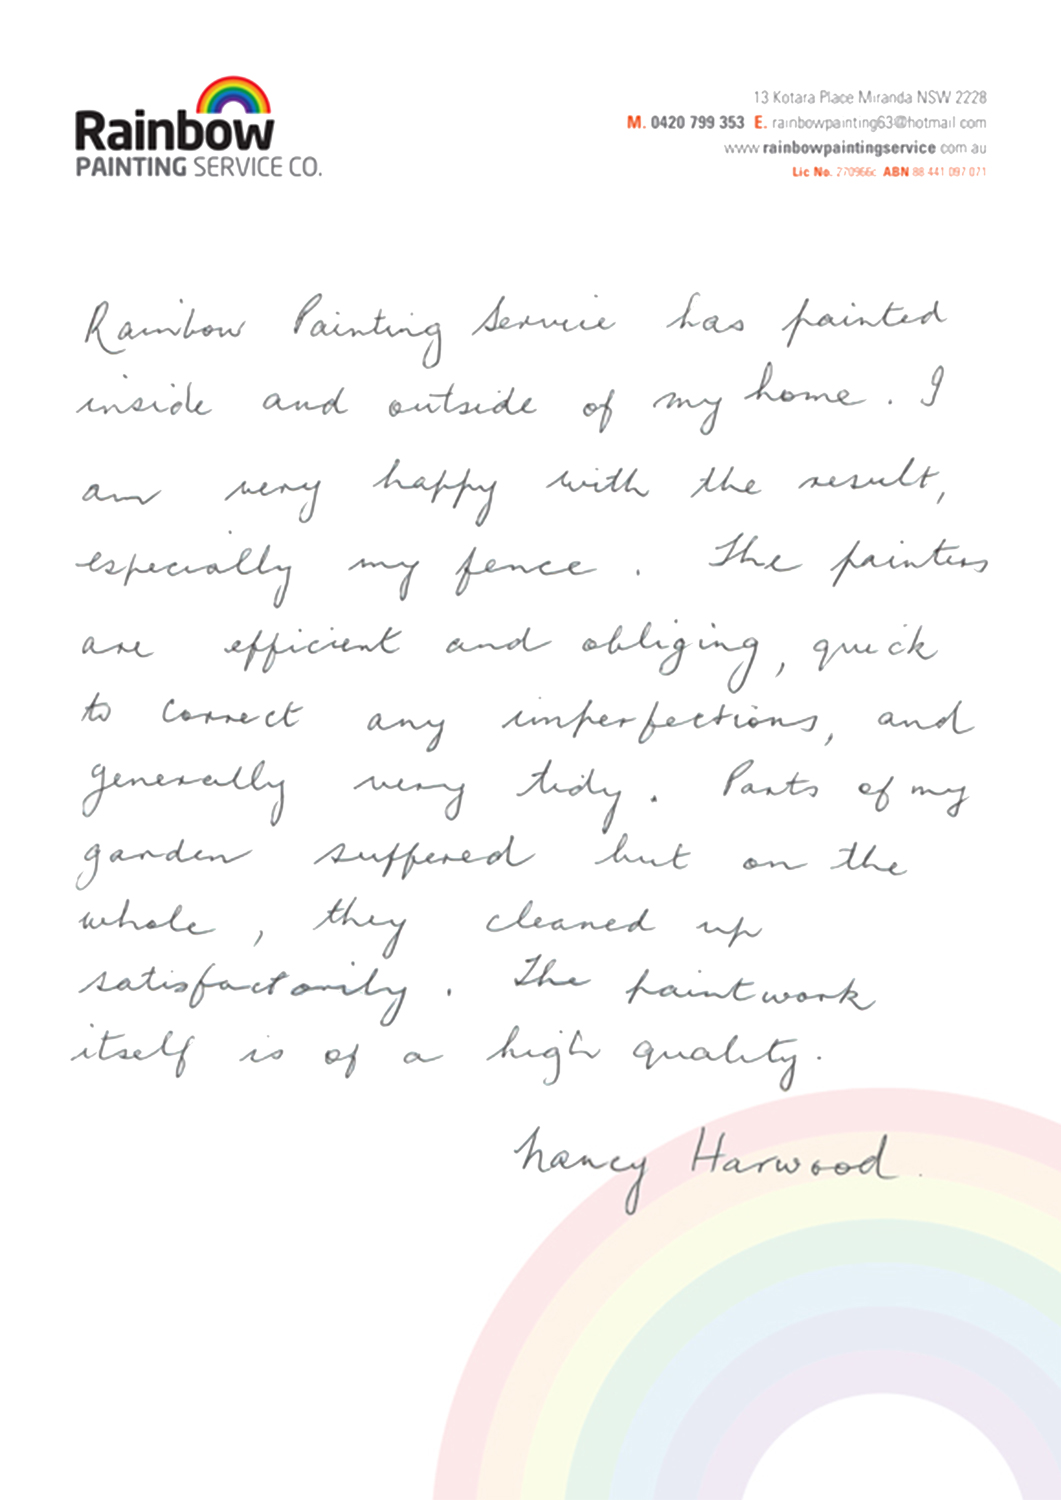 Rainbow
PAINTING SERVICE CO.
13 Kotara Place Miranda NSW 2228
M. 0420 799 353 E. rainbowpainting63@hotmail com
www rainbowpaintingservice com au
Lic No. 270966c ABN 88 441 097 071
Rainbow Painting Service has painted
inside and outside of my home. I
am very happy with the result,
especially my fence. The painters
are efficient and obliging, quick
to correct any imperfections, and
generally very tidy. Parts of my
garden suffered but on the
whole, they cleaned up
satisfactorily. The paintwork
itself is of a high quality.
Nancy Harwood.